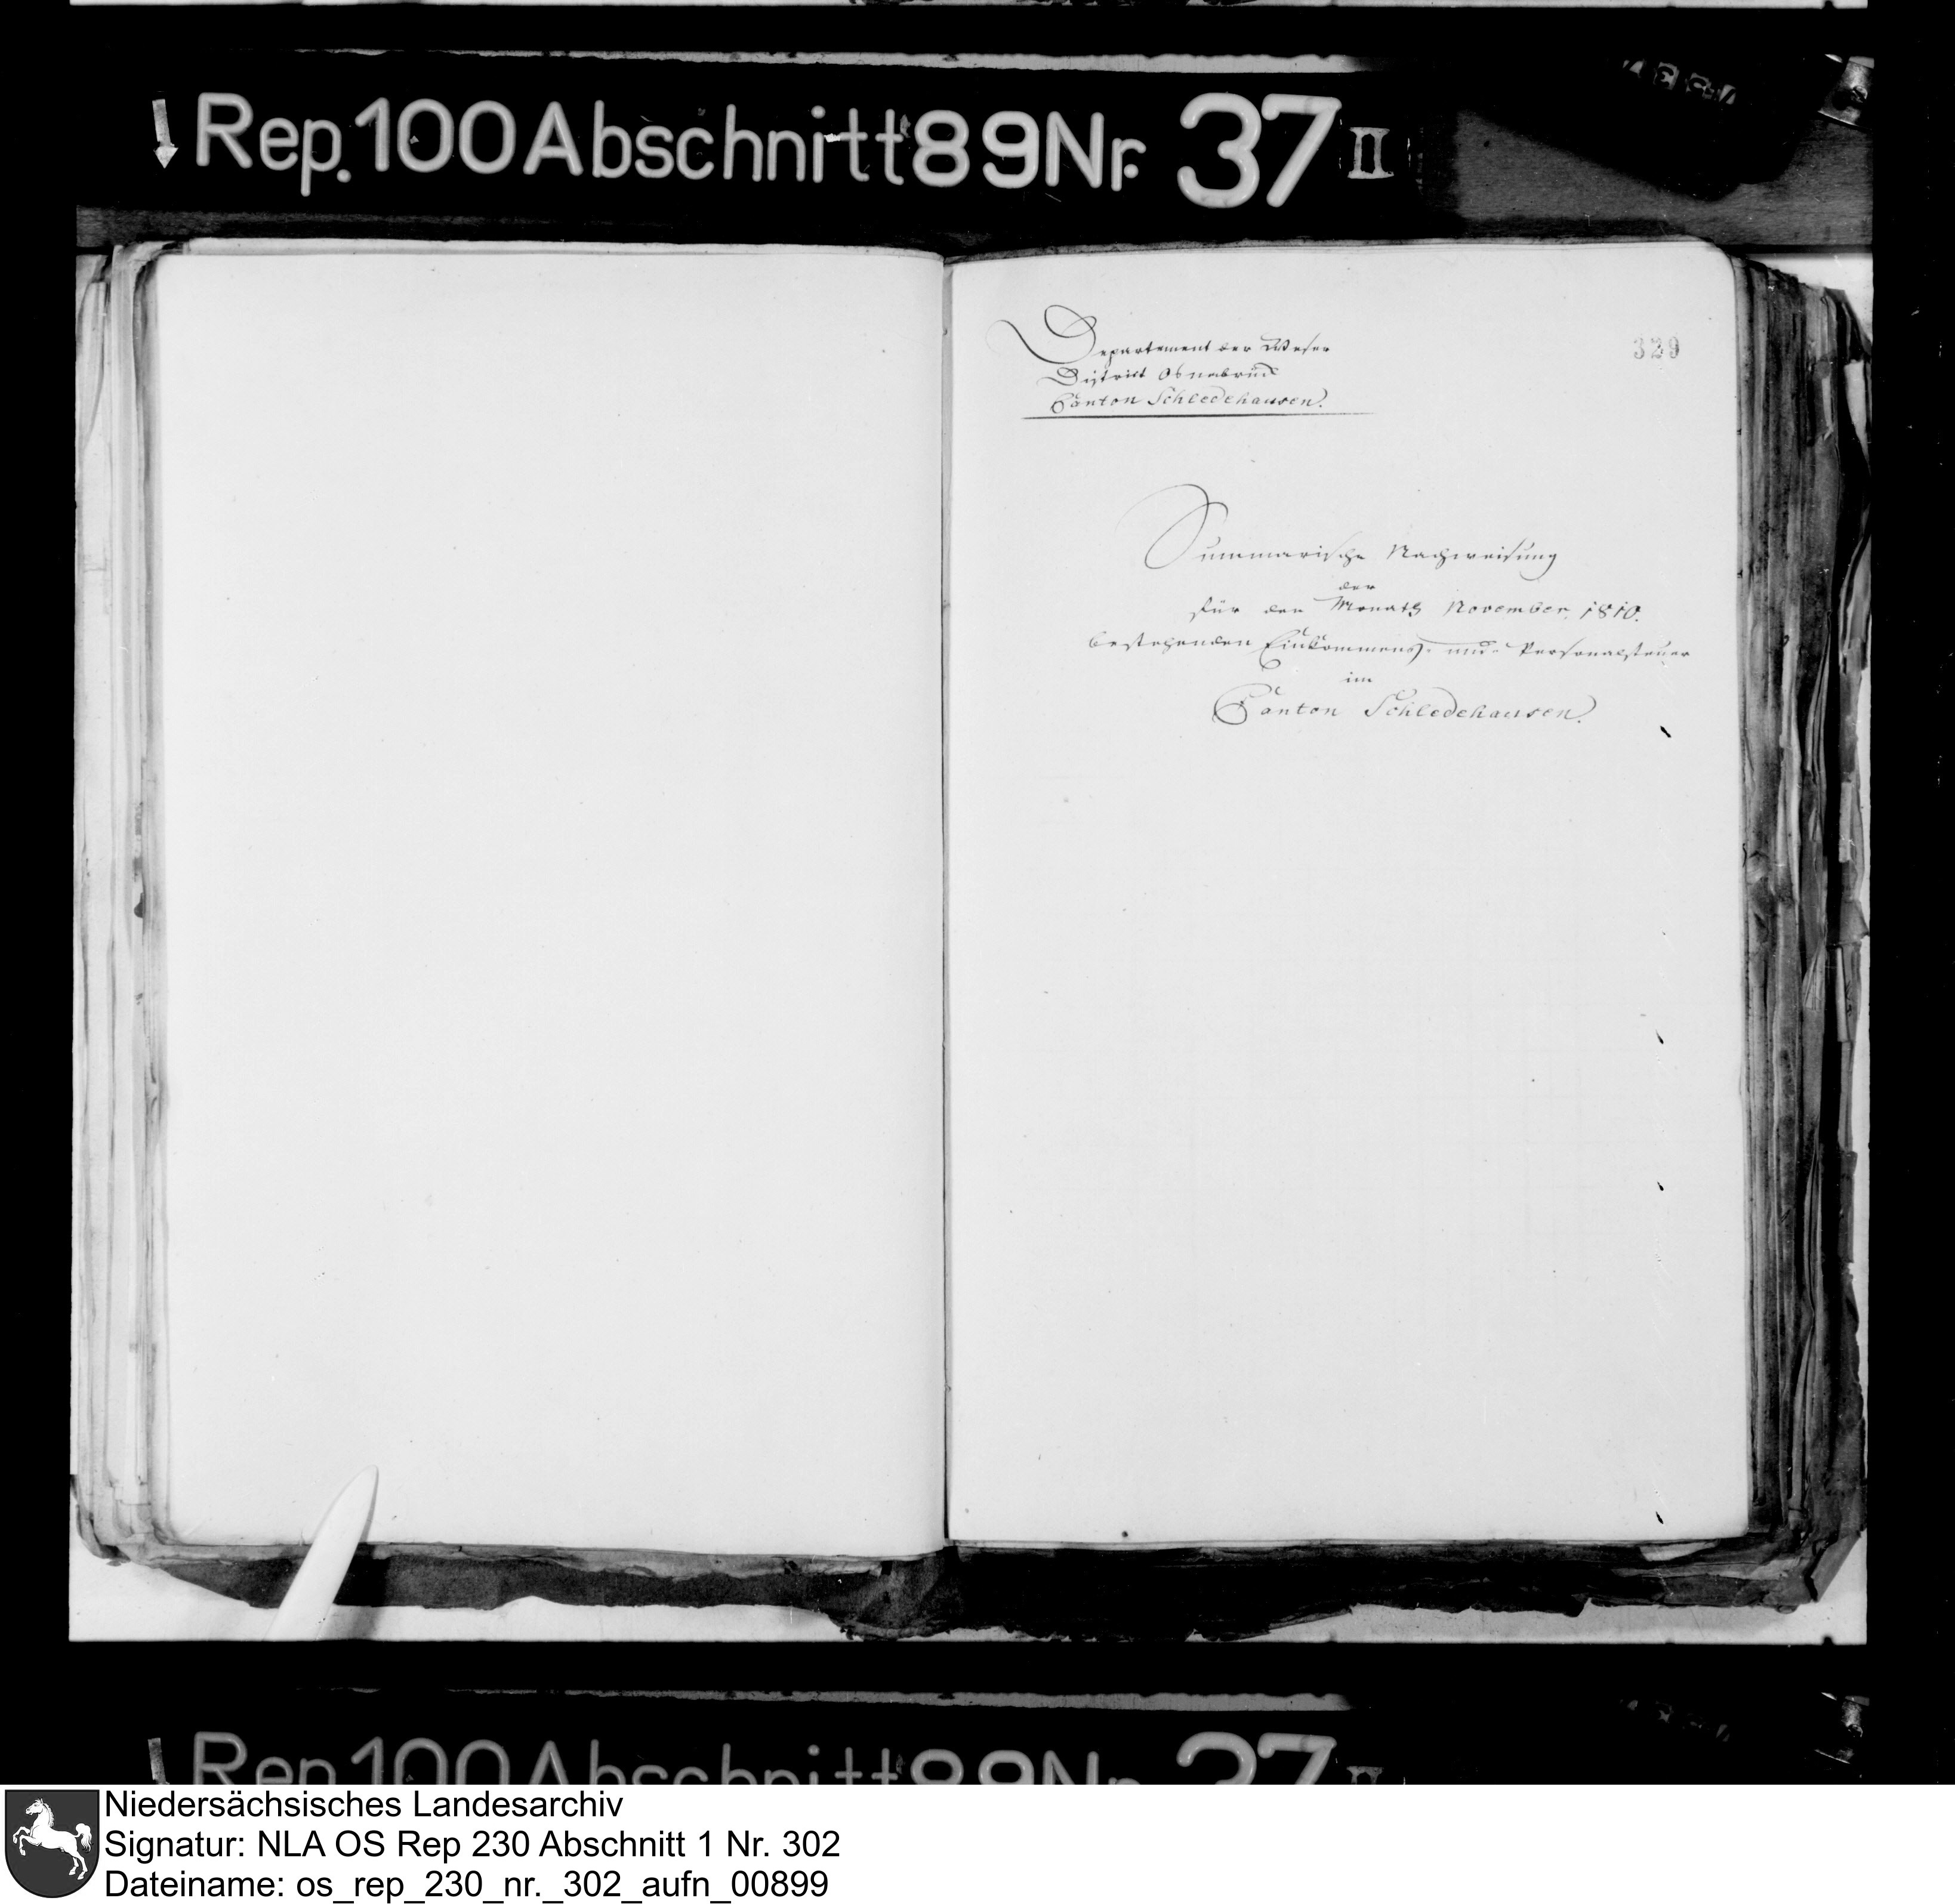 Rep. 100 Abschnitt 89 Nr. 37 II
329
Departement der Weser
District Osnabrück
Canton Schledehausen.
Summarische Nachweisung
der
für den Monath November 1810.
bestehenden Einkommens- und Personalsteuer
im
Canton Schledehausen.
Rep. 100 Abschnitt 89 Nr. 37 II
Niedersächsisches Landesarchiv
Signatur: NLA OS Rep 230 Abschnitt 1 Nr. 302
Dateiname: os_rep_230_nr._302_aufn_00899